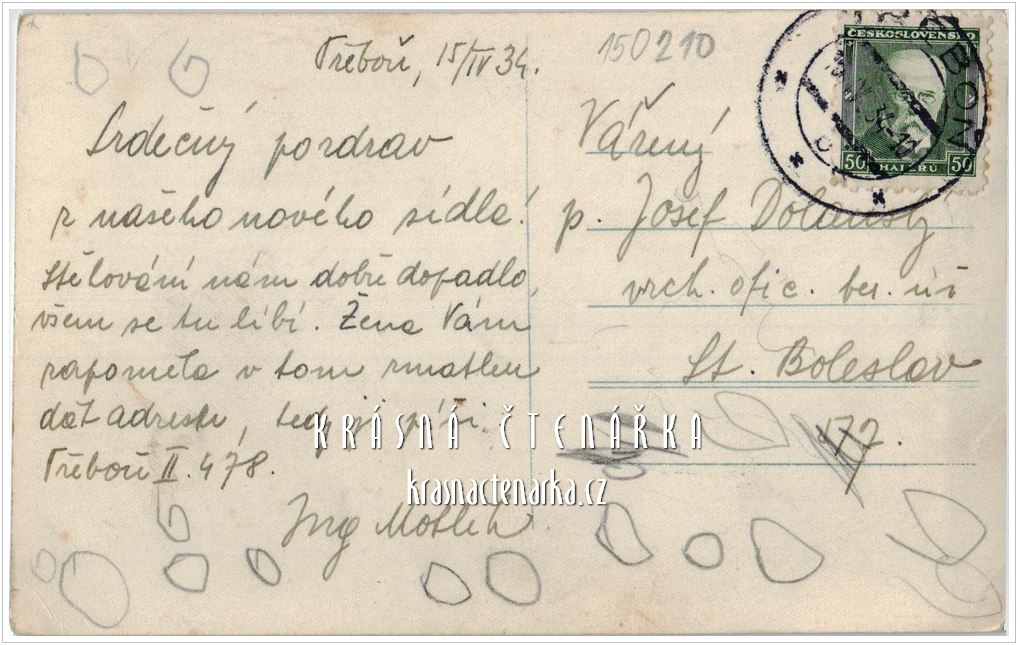 Třeboň, 15/IV 34.
150210
Srdečný pozdrav
z našeho nového sídla!
Stěhování nám dobře dopadlo,
všem se tu líbí. Žena Vám
zapoměla v tom zmatku
dát adresu, tedy ji píši.
Třeboň II. 478.
Ing
Vážený
p. Josef Dolanský
vrch. ofic. ber. úř
St. Boleslav
172.
TŘEBOŇ
ČESKOSLOVENSKO
50 HALÉŘŮ 50
KRÁSNÁ ČTENÁŘKA
krasnactenarka.cz